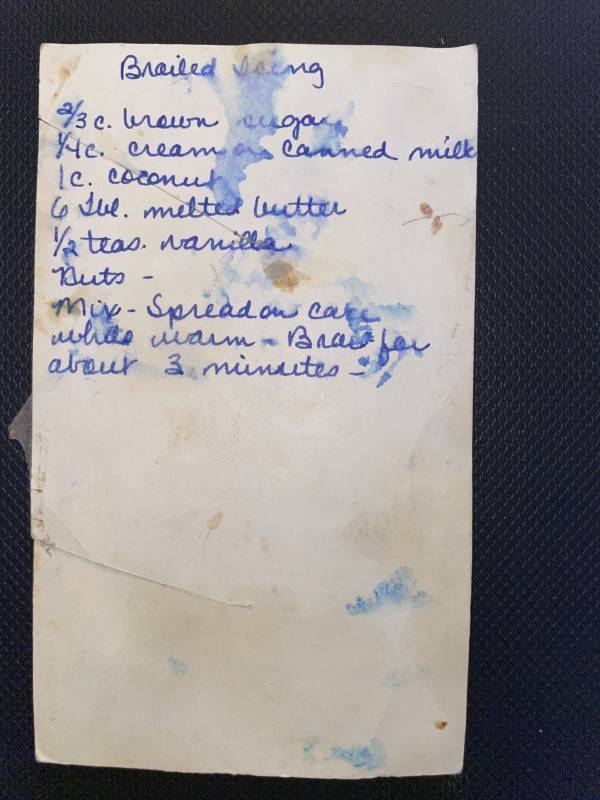 Broiled Icing
2/3 c. brown sugar
1/4 c. cream or canned milk
1 c. coconut
6 Tbl. melted butter
1/2 teas. vanilla
Nuts -
Mix - Spread on cake
while warm - Broil for
about 3 minutes -